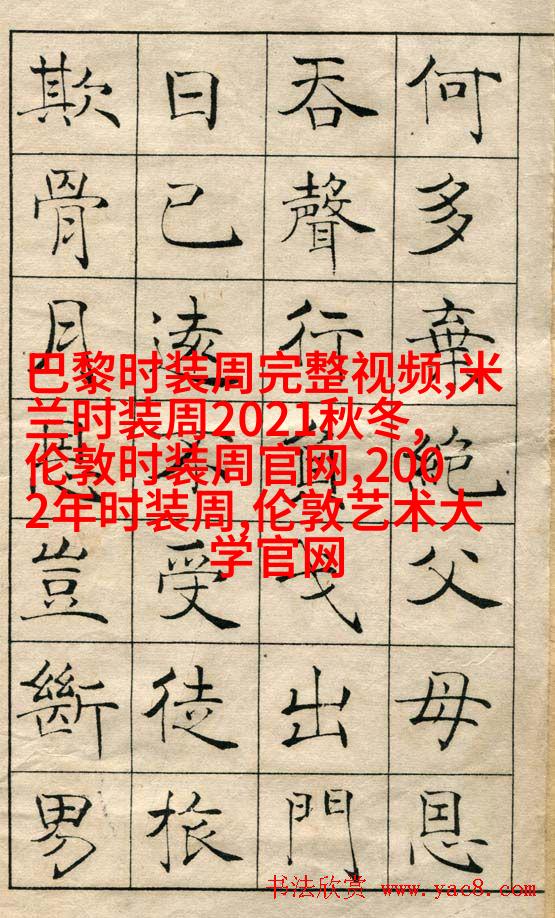 何多棄絕父母恩
吞聲行負戈出門
日已遠不受徒旅
欺骨月恩豈斷男
巴黎时装周完整视频,米
兰时装周2021秋冬,
伦敦时装周官网,200
2年时装周,伦敦艺术大
学官网
书法欣赏 www.yac8.com